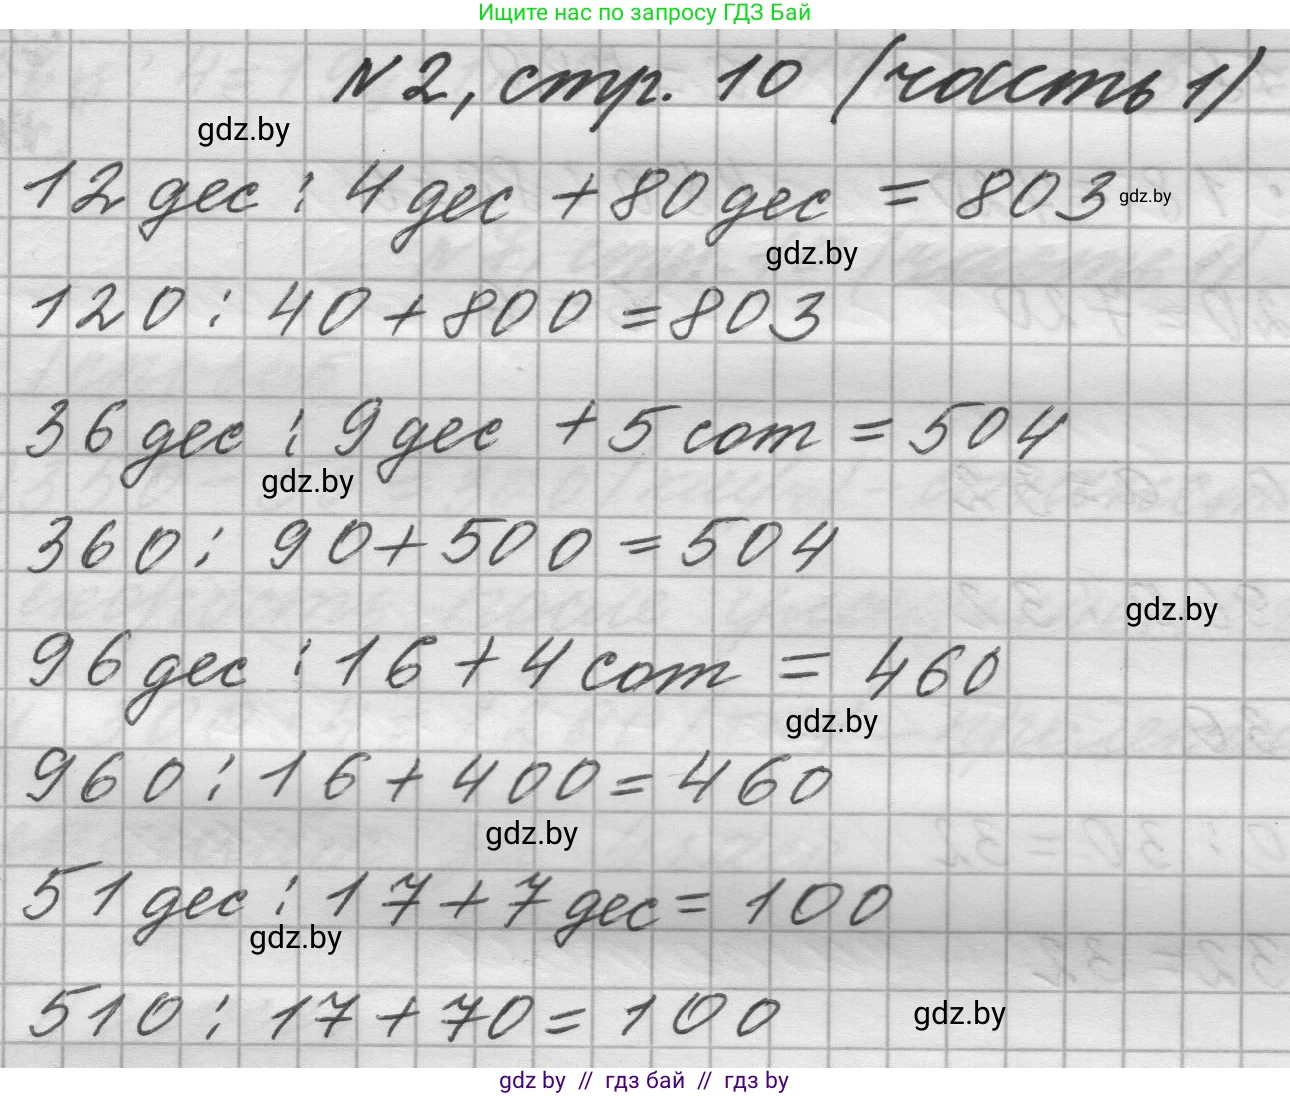 Ищите нас по запросу ГДЗ Бай
N2, стр. 10 (часть 1)
gdz.by
12 дес : 4 дес + 80 дес = 803 gdz.by
gdz.by
120 : 40 + 800 = 803
36 дес : 9 дес + 5 сот = 504
gdz.by
360 : 90 + 500 = 504
gdz.by
96 дес : 16 + 4 сот = 460
gdz.by
960 : 16 + 400 = 460
gdz.by
51 дес : 17 + 7 дес = 100
gdz.by
510 : 17 + 70 = 100
gdz.by
gdz by // гдз бай // гдз by